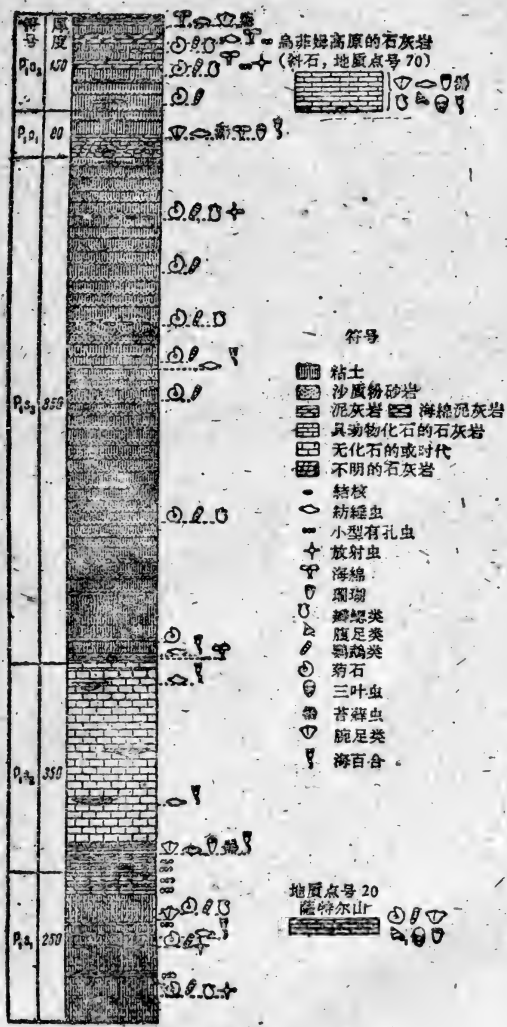 符号 厚度
P₁a₂ 150
P₁a₁ 80
P₁s₃ 850
P₁s₂ 350
P₁s₁ 250
乌菲姆高原的石灰岩
(斜石,地质点号 70)
符号
粘土
沙质粉砂岩
泥灰岩 海綿泥灰岩
具动物化石的石灰岩
无化石的或时代
不明的石灰岩
結核
紡縫虫
小型有孔虫
放射虫
海綿
珊瑚
瓣鳃类
腹足类
鸚鵡类
菊石
三叶虫
苔蘚虫
腕足类
海百合
地质点号 20
薩特尔山